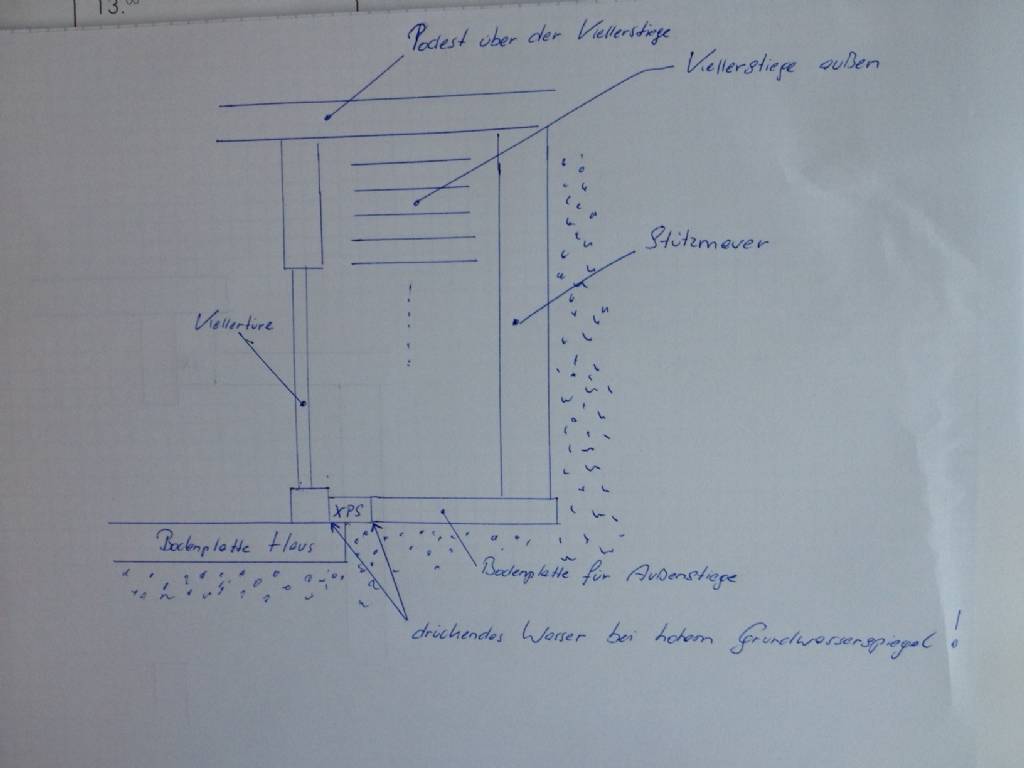 13.00
Podest über der Kellerstiege
Kellerstiege außen
Stützmauer
Kellertüre
XPS
Bodenplatte Haus
Bodenplatte für Außenstiege
drückendes Wasser bei hohem Grundwasserspiegel !